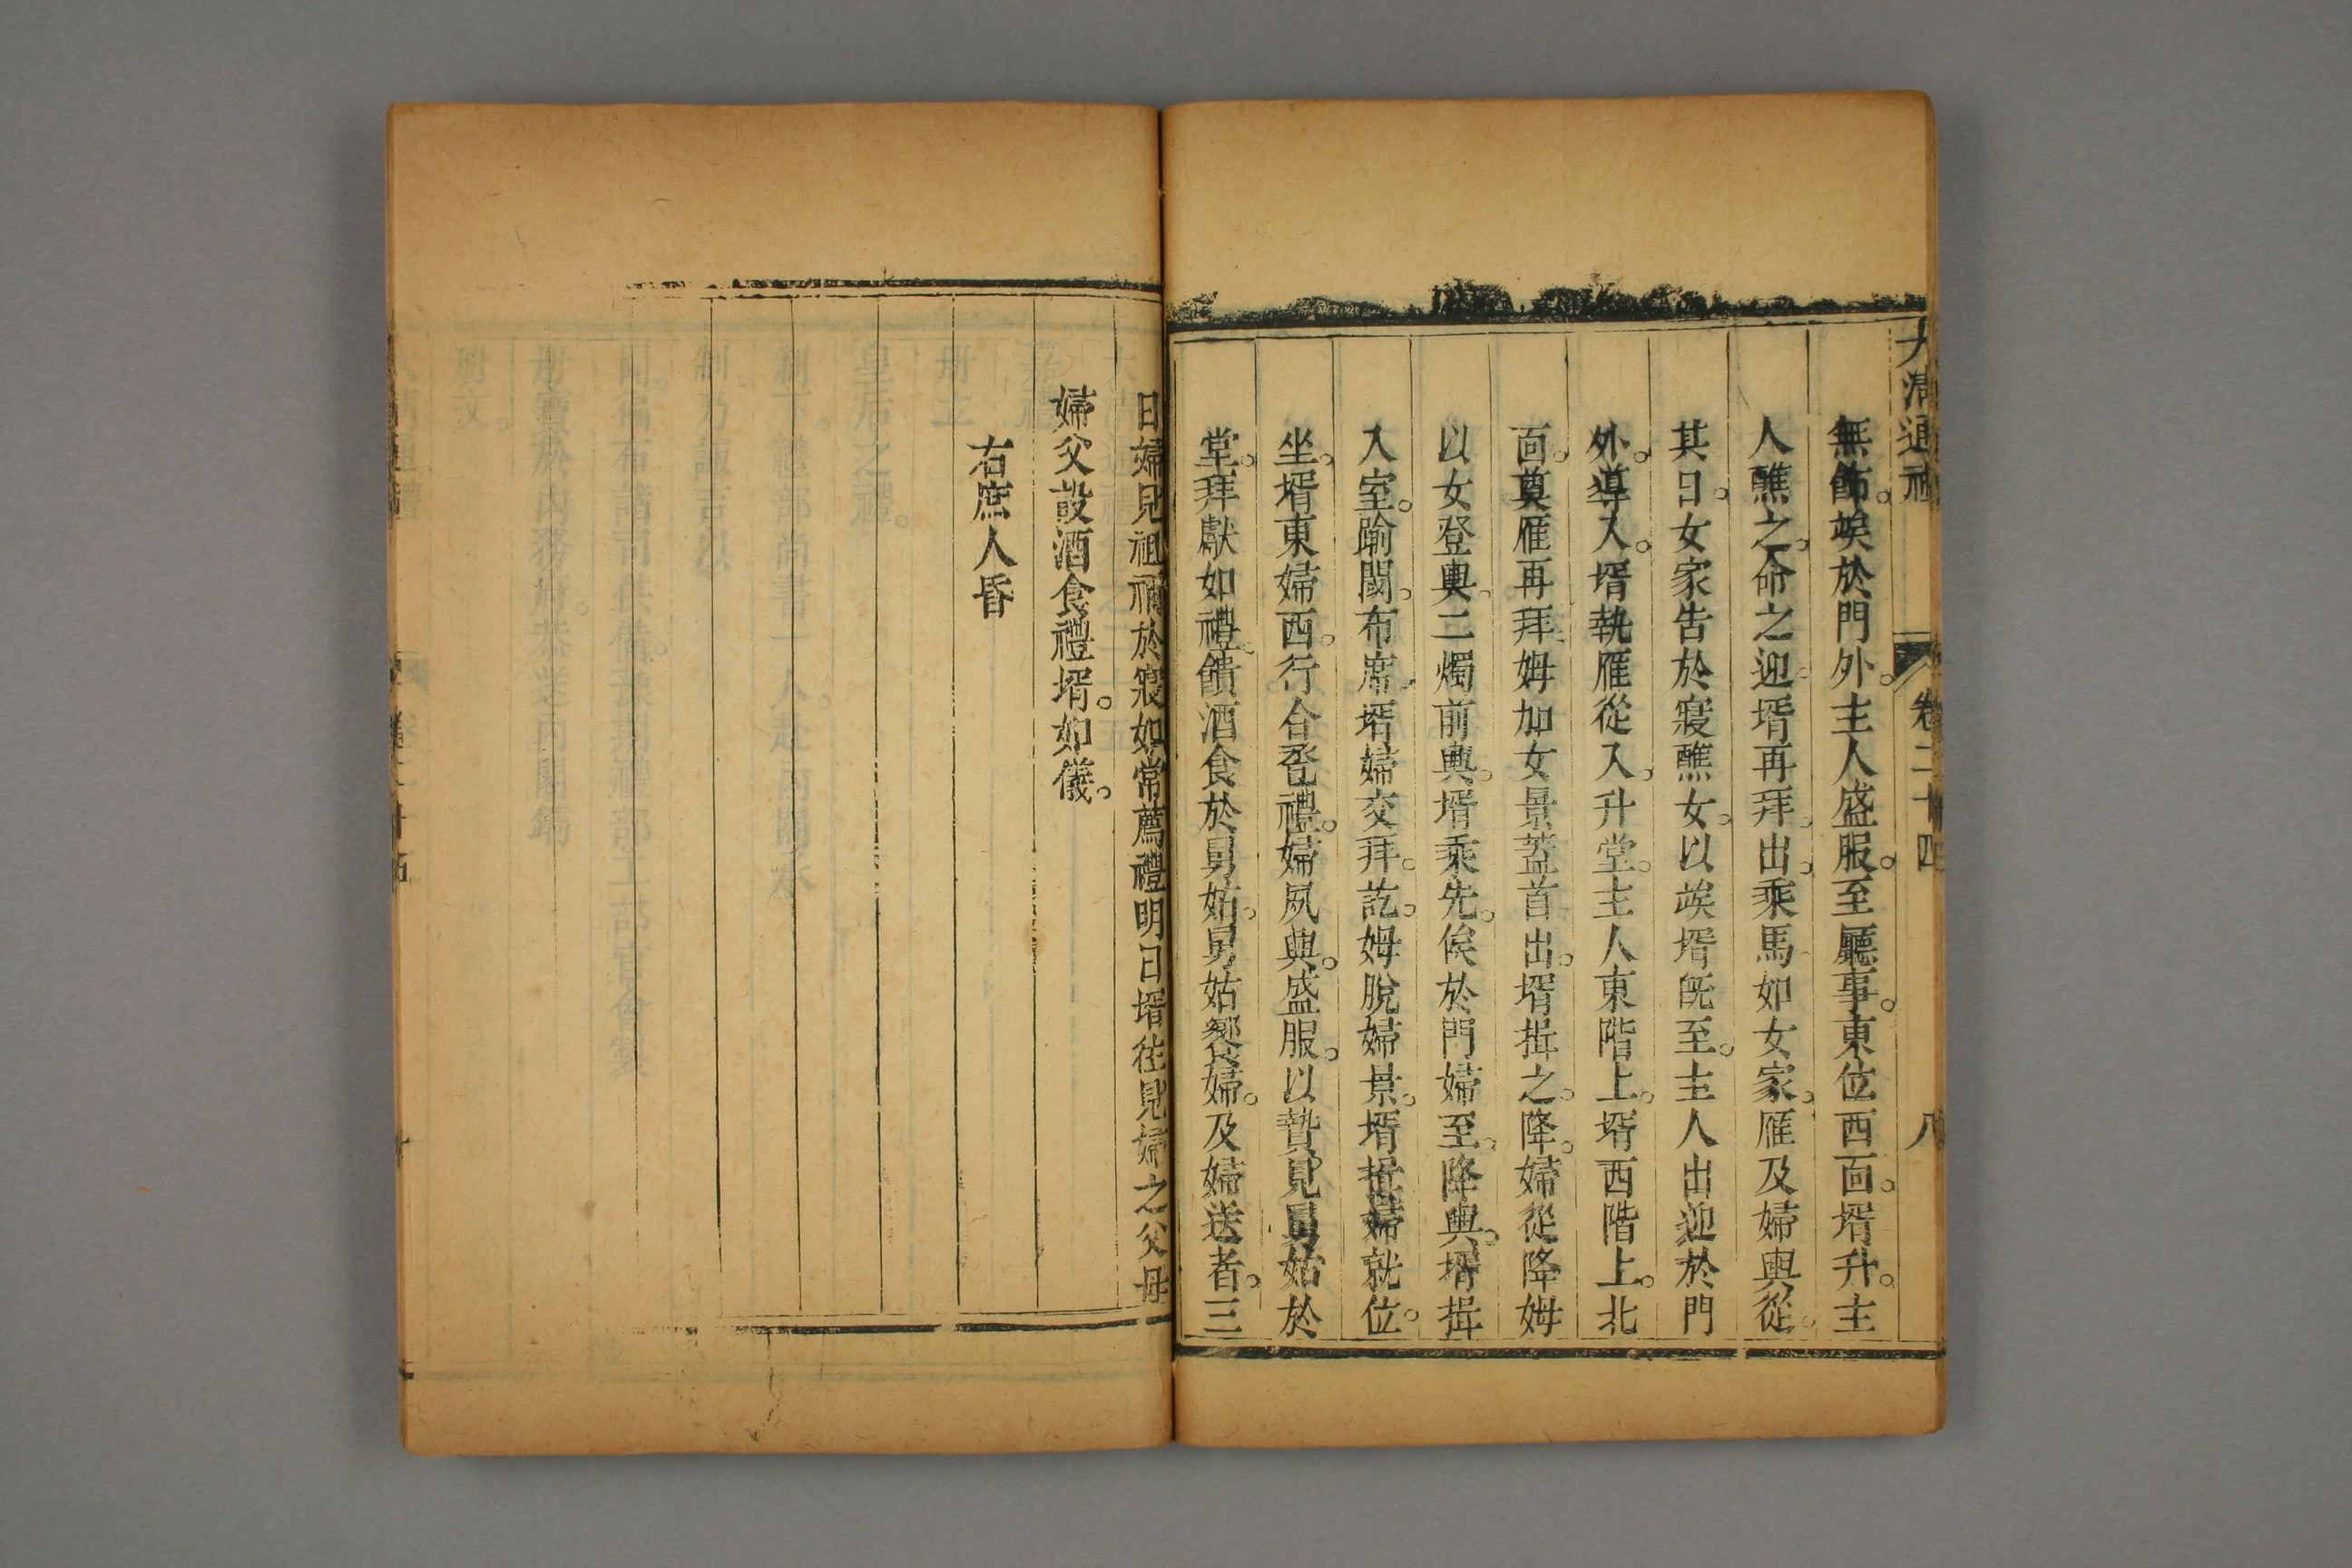 大清通禮 卷二十四 八
無飾。竢於門外。主人盛服。至廳事。東位西面。壻升。主
人醮之。命之迎。壻再拜。出。乘馬如女家。雁及婦輿從。
其日。女家告於寢醮女。以竢壻旣至。主人出迎於門
外。導入。壻執雁從入。升堂。主人東階上。壻西階上。北
面。奠雁再拜。姆加女景蓋首出。壻揖之。降。婦從降姆
以女登輿。二燭前輿。壻乘先。俟於門婦至。降輿。壻揖
入室。踰閾。布席。壻婦交拜。訖。姆脫婦景。壻揖婦就位。
坐。壻東婦西。行合卺禮。婦夙興。盛服。以贄見舅姑於
堂。拜獻如禮。饋酒食於舅姑。舅姑饗婦。及婦送者。三
日婦見祖禰於寢如常薦禮明日壻往見婦之父母
婦父設酒食禮壻。如儀。
右庶人昏